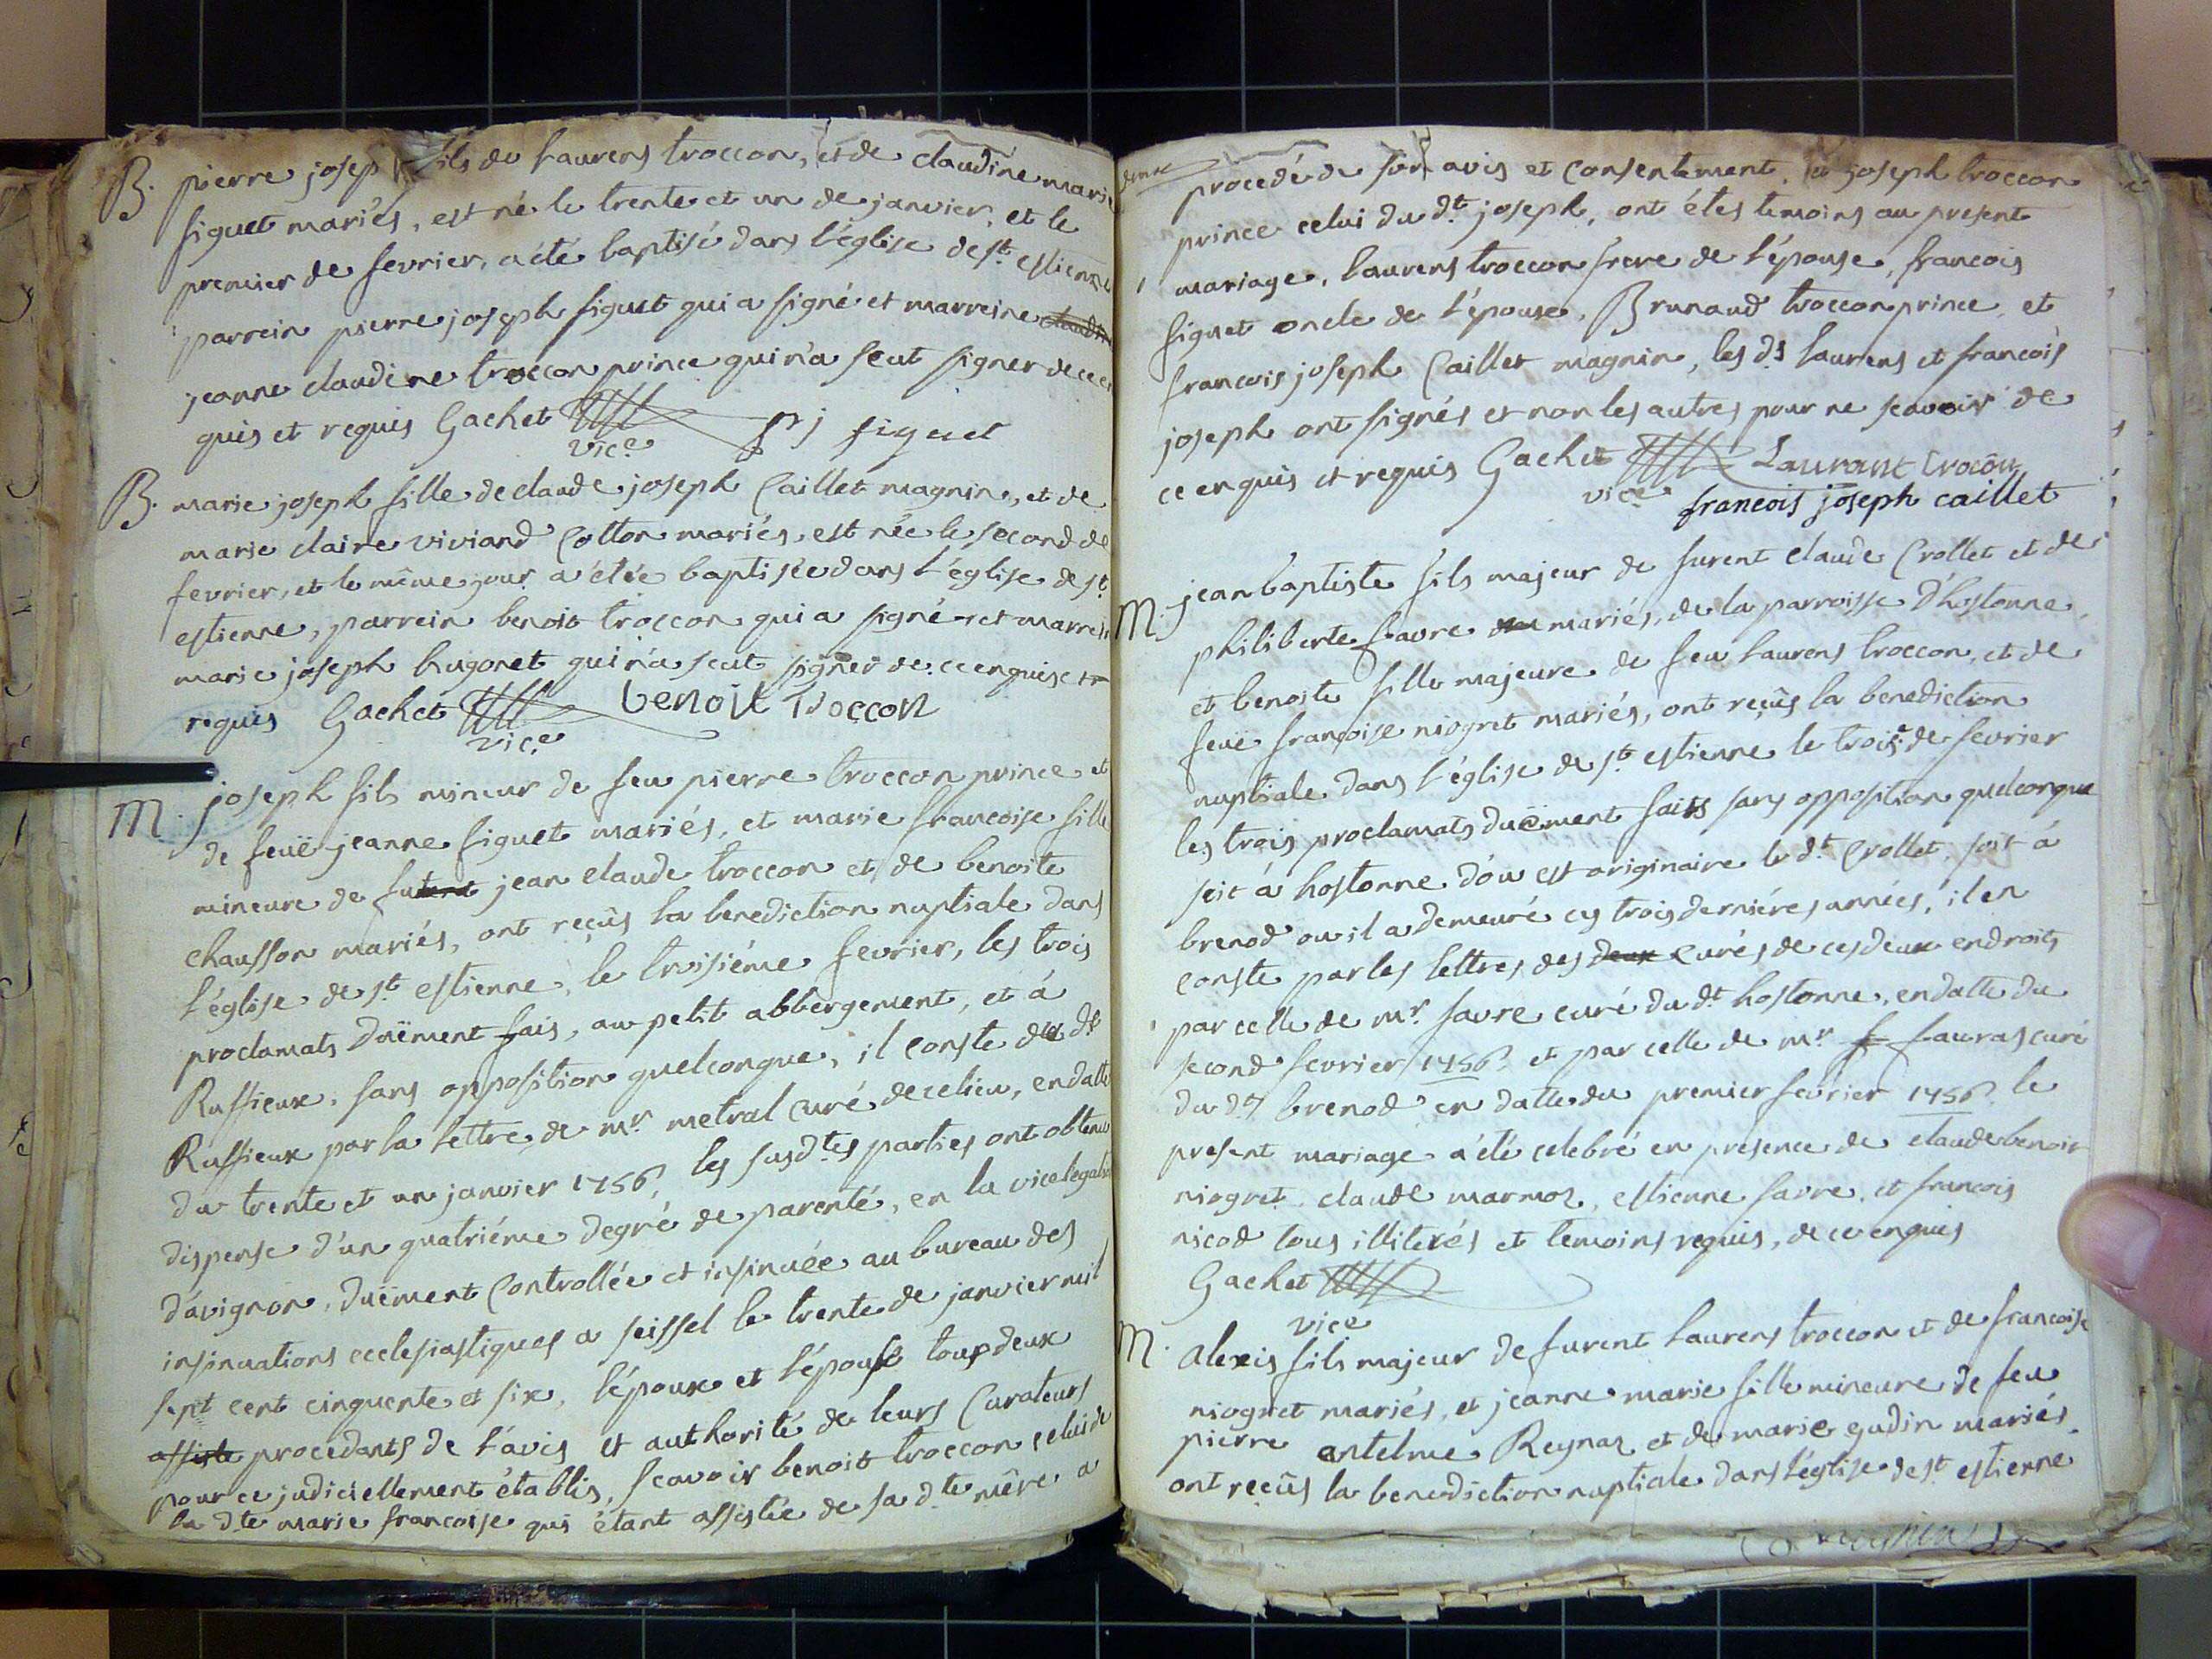 B. pierre josep fils de laurens troccon, et de claudine marie
figuet mariés, est né le trente et un de janvier, et le
premier de fevrier, a été baptisé dans l'église de st. estienne
parrein pierre joseph figuet qui a signé et marreine claudin
jeanne claudine troccon prince qui n'a scut signer de ce en
quis et requis Gachet
vice prj figuet
B. marie joseph fille de claude joseph Caillet magnin, et de
marie claire viviand Cotton mariés, est née le second de
fevrier, et le même jour a étée baptisée dans l'église de st.
estienne, parrein benoit troccon qui a signé et marrei
marie joseph hugonet qui n'a scut signer de ce enquise et
requis Gachet benoit Troccon
vice
M. joseph fils mineur de feu pierre troccon prince et
de feuë jeanne figuet mariés, et marie francoise fille
mineure de futent jean claude troccon et de benoite
chausson mariés, ont reçûs la benediction nuptiale dans
l'église de st. estienne, le troisiéme fevrier, les trois
proclamats duëment fais, au petit abbergement, et à
Ruffieux, sans opposition quelconque, il conste du dt
Ruffieux par la lettre de mr. metral curé de ce lieu, en datte
du trente et un janvier 1756, les susd.tes parties ont obtenu
dispense d'un quatriéme degré de parenté, en la vicelegati
d'avignon, duëment Controllée et insinuée au bureau des
insinuations ecclesiastiques a seissel le trente de janvier mil
sept cent cinquente et six, l'époux et l'épouse toup deux
assiste procedants de l'avis et authorité de leurs Curateurs
pour ce judiciellement établis, scavoir benoit troccon celui de
la d.te marie francoise qui étant assistée de sa d.te mêre a
procedé de son avis et consentement, et joseph troccon
prince celui du d.t joseph, ont étes temoins au present
mariage, laurens troccon frere de l'épouse, francois
figuet oncle de l'épouse, Brunaud troccon prince, et
francois joseph Caillet magnin, les d.s laurens et francois
joseph ont signés et non les autres pour ne scavoir de
ce enquis et requis Gachet Laurant trocon
vice francois joseph caillet
M. jean baptiste fils majeur de furent claude Crollet et de
philiberte favre mariés, de la parroisse d'hostonne,
et benoite fille majeure de feu laurens troccon, et de
feuë françoise niogret mariés, ont reçûs la benediction
nuptiale dans l'église de st. estienne le trois.e de fevrier
les trois proclamats duëment faits sans opposition quelconque
soit à hostonne d'ou est originaire le d.t Crollet, soit à
brenod ou il a demeuré ces trois derniéres années, il en
conste par les lettres des deux curés de ces deux endroits
par celle de mr. favre curé du d.t hostonne, en datte du
second fevrier 1756. et par celle de mr f fauras curé
du d.t brenod en datte du premier fevrier 1756. le
present mariage a été celebré en presence de claude benoit
niogret, claude marmoz, estienne favre, et francois
nicod tous illiterés et temoins requis, de ce enquis
Gachet
vice
M. alexis fils majeur de furent laurens troccon et de francoise
niogret mariés, et jeanne marie fille mineure de feu
pierre antelme Reynaz et de marie gudin mariés,
ont reçûs la benediction nuptiale dans l'église de st. estienne